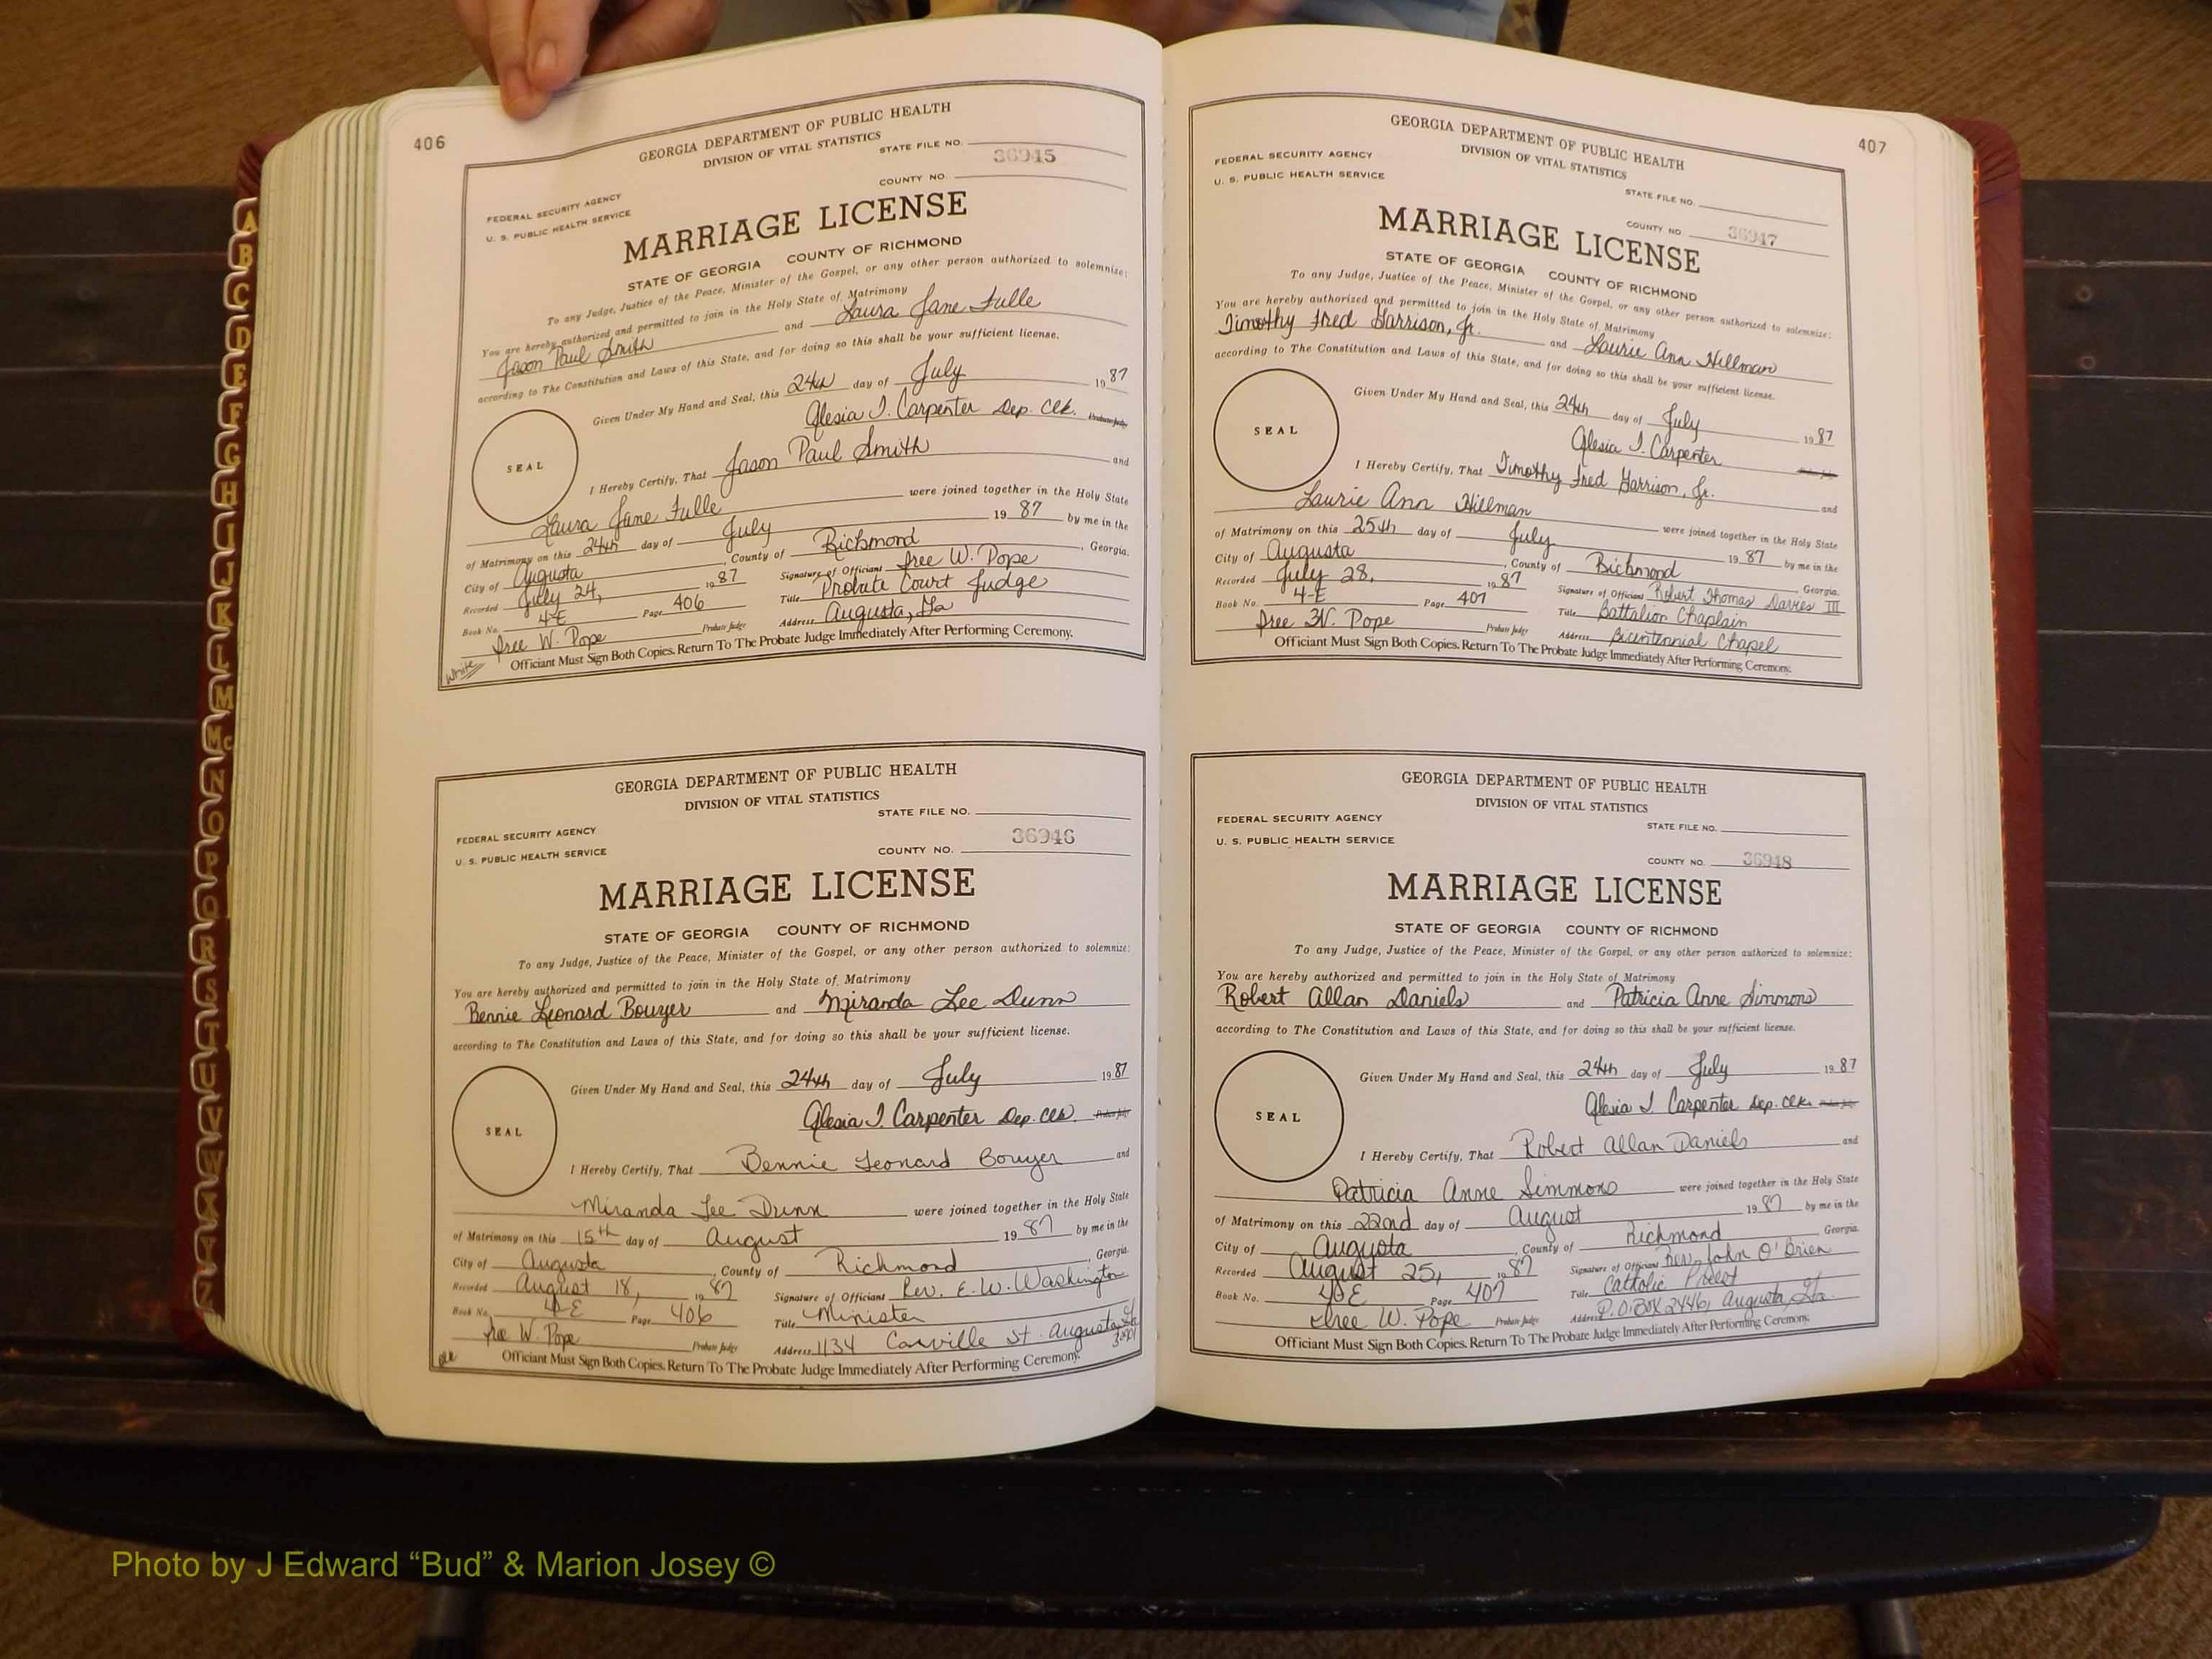 406
GEORGIA DEPARTMENT OF PUBLIC HEALTH
DIVISION OF VITAL STATISTICS
STATE FILE NO.
36945
FEDERAL SECURITY AGENCY
U. S. PUBLIC HEALTH SERVICE
COUNTY NO.
MARRIAGE LICENSE
STATE OF GEORGIA COUNTY OF RICHMOND
To any Judge, Justice of the Peace, Minister of the Gospel, or any other person authorized to solemnize:
You are hereby authorized and permitted to join in the Holy State of Matrimony
Jason Paul Smith and Laura Jane Fulle
according to The Constitution and Laws of this State, and for doing so this shall be your sufficient license.
Given Under My Hand and Seal, this 24th day of July 1987
Glesia J. Carpenter Dep. Clk. Probate Judge
SEAL
I Hereby Certify, That Jason Paul Smith and
Laura Jane Fulle were joined together in the Holy State
of Matrimony on this 24th day of July 1987 by me in the
City of Augusta, County of Richmond, Georgia.
Recorded July 24, 1987 Signature of Officiant Iree W. Pope
Book No. 4-E Page 406 Title Probate Court Judge
Iree W. Pope Probate Judge Address Augusta, Ga
Officiant Must Sign Both Copies. Return To The Probate Judge Immediately After Performing Ceremony.
White
GEORGIA DEPARTMENT OF PUBLIC HEALTH
DIVISION OF VITAL STATISTICS
STATE FILE NO.
FEDERAL SECURITY AGENCY
U. S. PUBLIC HEALTH SERVICE
COUNTY NO. 36946
MARRIAGE LICENSE
STATE OF GEORGIA COUNTY OF RICHMOND
To any Judge, Justice of the Peace, Minister of the Gospel, or any other person authorized to solemnize:
You are hereby authorized and permitted to join in the Holy State of Matrimony
Bennie Leonard Bouyer and Miranda Lee Dunn
according to The Constitution and Laws of this State, and for doing so this shall be your sufficient license.
Given Under My Hand and Seal, this 24th day of July 1987
Glesia J. Carpenter Dep. Clk. Probate Judge
SEAL
I Hereby Certify, That Bennie Leonard Bouyer and
Miranda Lee Dunn were joined together in the Holy State
of Matrimony on this 15th day of August 1987 by me in the
City of Augusta, County of Richmond Georgia.
Recorded August 18, 1987 Signature of Officiant Rev. E. W. Washington
Book No. 4-E Page 406 Title Minister
Iree W. Pope Probate Judge Address 1134 Carville St. Augusta Ga
Officiant Must Sign Both Copies. Return To The Probate Judge Immediately After Performing Ceremony.
407
GEORGIA DEPARTMENT OF PUBLIC HEALTH
DIVISION OF VITAL STATISTICS
FEDERAL SECURITY AGENCY
U. S. PUBLIC HEALTH SERVICE
STATE FILE NO.
COUNTY NO 36947
MARRIAGE LICENSE
STATE OF GEORGIA COUNTY OF RICHMOND
To any Judge, Justice of the Peace, Minister of the Gospel, or any other person authorized to solemnize:
You are hereby authorized and permitted to join in the Holy State of Matrimony
Timothy Fred Garrison, Jr. and Laurie Ann Hillman
according to The Constitution and Laws of this State, and for doing so this shall be your sufficient license.
Given Under My Hand and Seal, this 24th day of July 1987
Glesia J. Carpenter
SEAL
I Hereby Certify, That Timothy Fred Garrison, Jr. and
Laurie Ann Hillman were joined together in the Holy State
of Matrimony on this 25th day of July 1987 by me in the
City of Augusta, County of Richmond Georgia.
Recorded July 28, 1987 Signature of Officiant Robert Thomas Davies III
Book No. 4-E Page 407 Title Battalion Chaplain
Iree W. Pope Probate Judge Address Bicentennial Chapel
Officiant Must Sign Both Copies. Return To The Probate Judge Immediately After Performing Ceremony.
GEORGIA DEPARTMENT OF PUBLIC HEALTH
DIVISION OF VITAL STATISTICS
FEDERAL SECURITY AGENCY
U. S. PUBLIC HEALTH SERVICE
STATE FILE NO.
COUNTY NO. 36948
MARRIAGE LICENSE
STATE OF GEORGIA COUNTY OF RICHMOND
To any Judge, Justice of the Peace, Minister of the Gospel, or any other person authorized to solemnize:
You are hereby authorized and permitted to join in the Holy State of Matrimony
Robert Allan Daniels and Patricia Anne Simmons
according to The Constitution and Laws of this State, and for doing so this shall be your sufficient license.
Given Under My Hand and Seal, this 24th day of July 1987
Glesia J. Carpenter Dep. Clk.
SEAL
I Hereby Certify, That Robert Allan Daniels and
Patricia Anne Simmons were joined together in the Holy State
of Matrimony on this 22nd day of August 1987 by me in the
City of Augusta, County of Richmond Georgia.
Recorded August 25, 1987 Signature of Officiant Rev. John O'Brien
Book No. 4-E Page 407 Title Catholic Priest
Iree W. Pope Probate Judge Address P.O. Box 2446, Augusta, Ga.
Officiant Must Sign Both Copies. Return To The Probate Judge Immediately After Performing Ceremony.
A
B
C
D
E
F
G
H
I
J
K
L
M
Mc
N
O
P
Q
R
S
T
U
V
W
X
Y
Z
Photo by J Edward “Bud” & Marion Josey ©